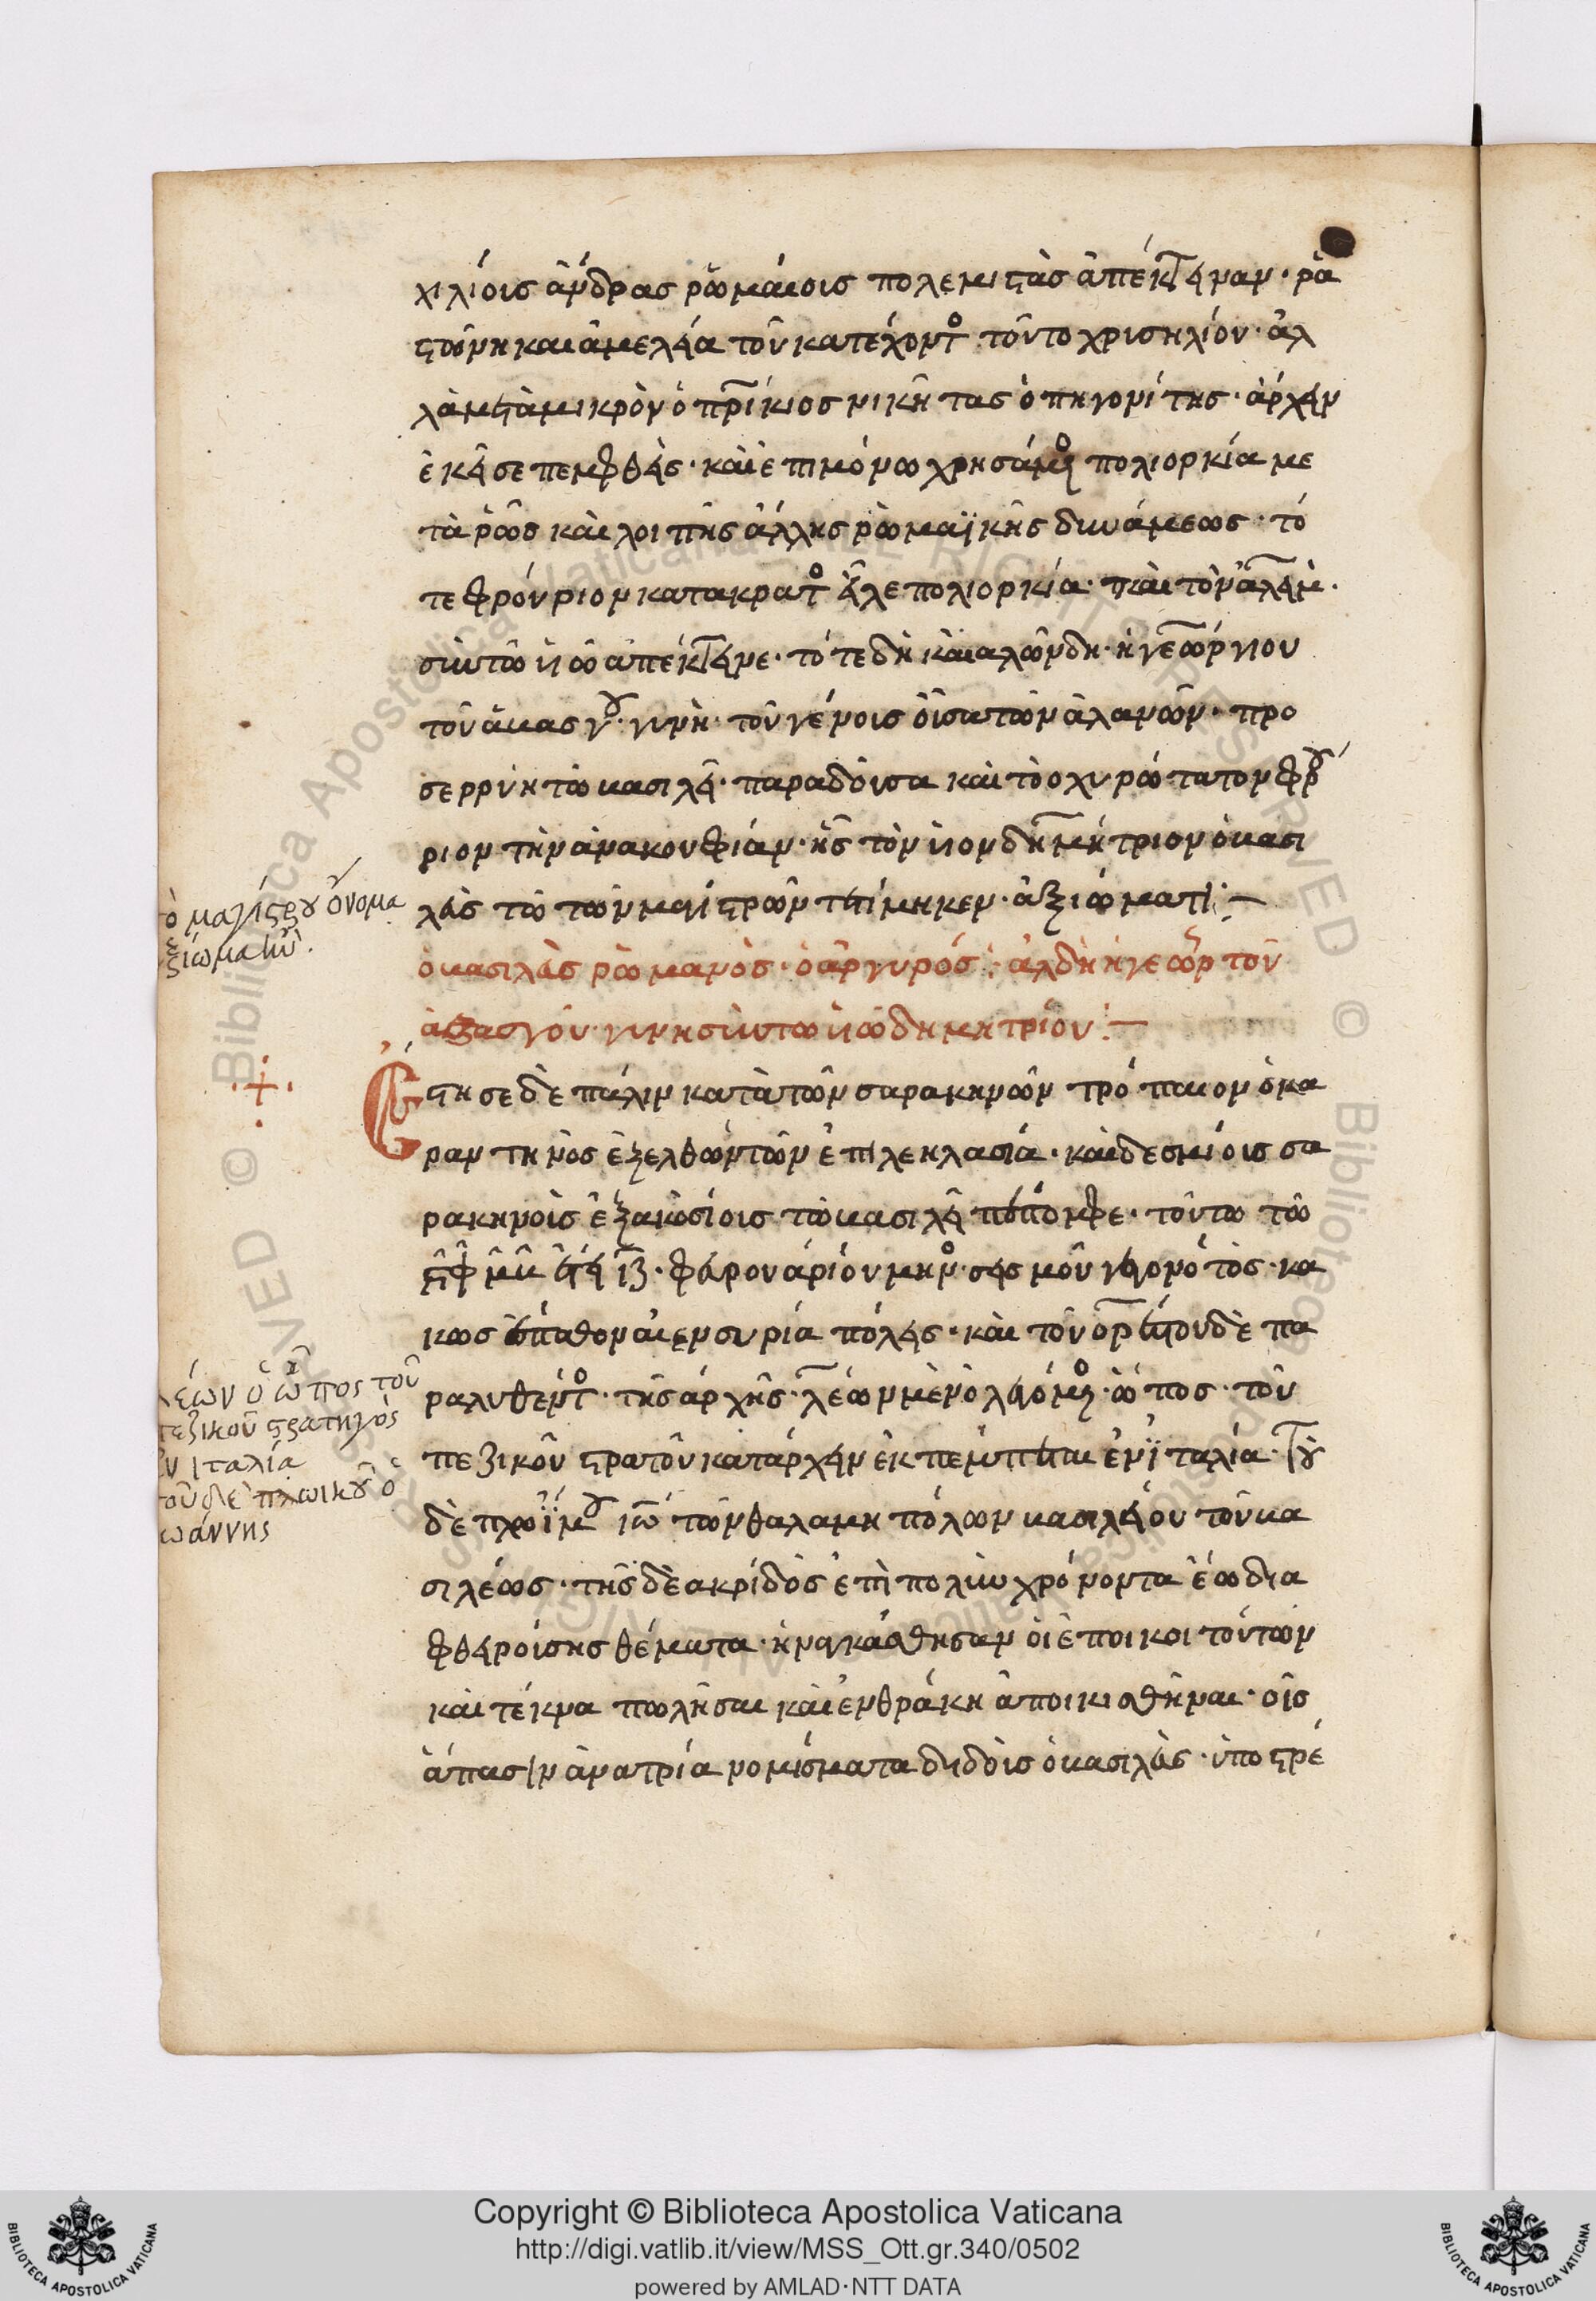 χιλίοις ἄνδρας ῥωμαίοις πολεμιστὰς ἀπέκτειναν· ῥα
στώνη καὶ ἀμελεία τοῦ κατέχοντο τοῦτο χρισηλίου· ἀλ
λὰ μετὰ μικρὸν ὁ πρίκιος νικήτας ὁ πηγονίτης· ἄρχειν
ἐκεῖσε πεμφθεὶς· καὶ ἐπιμόνω χρησάμενος πολιορκία με
τὰ ῥῶς καὶ λοιπῆς ἄλλης ῥωμαϊκῆς δυνάμεως· τό
τε φρούριον κατακρατο εἷλε πολιορκία· καὶ τὸν ἀλεὶμ·
σὺν τῶ υἱῶ ἀπέκτεινε· τότε δὴ καὶ αλῶνδη· ἡ γεωργίου
τοῦ ἀυασγου· γυνὴ· τοῦ γένους οὖσα τῶν ἀλανῶν· προ
σερρύη τῶ βασιλεῖ· παραδοῦσα καὶ τὸ οχυρώτατον φρού
ριον τὴν ἀνακουφίαν· ἧς τὸν υἱον δημήτριον ὁ βασι
λεὺς τῶ τῶν μαγίστρων τετίμηκεν· ἀξιώματι:—
ὁ βασιλεὺς ῥωμανὸς· ὁ ἀργυρός: ἀλδὴ ἡ γεωρ τοῦ
ἀβασγοῦ· γυνὴ σὺν τῶ υἱῶ δημητρίου:—
Ἔστησε δὲ πάλιν κατὰ τῶν σαρακηνῶν τρόπαιον ὁ κα
ραντηνὸς ἐξελθόντων ἐπὶ λεηλασία· καὶ δεσμίοις σα
ρακηνοὶς ἑξακοσίοις τῶ βασιλεῖ πέπομφε· τούτω τῶ
ςφμβ ἔτει ιζ· φευρουαρίου μην· σεισμοῦ γεγονότος· κα
κῶς ἔπαθον αἱ εν συρία πόλεις· καὶ τοῦ ορέστου δὲ πα
ραλυθέντος· τῆς ἀρχῆς· λέων μὲν ὁ λεγόμενος· ὦπος· τοῦ
πεζικοῦ στρατοῦ κατάρχειν ἐκπέμπεται ἐν ἰταλία· τοῦ
δὲ πλοΐμου ἰω τῶν θαλαμηπόλων βασιλείου τοῦ βα
σιλέως· τῆς δὲ ακρίδος ἐπὶ πολὺν χρόνον τα ἑῶα δια
φθειρούσης θέματα· ἠναγκάσθησαν οἱ ἔποικοι τούτων
καὶ τέκνα πωλῆσαι καὶ ἐν θράκη ἀποικισθῆναι· οἷς
ἅπασιν ἀνὰ τρία νομίσματα διδοὺς ὁ βασιλεὺς· ὑποστρέ
ὁ μαγίστρου ὄνομα
ξίωμα ἦν.
λέων ὁ ὦπος τοῦ
πεζικοῦ στρατηγὸς
ἐν ιταλία
τοῦ δὲ πλωικοῦ ὁ
ωάννης
Copyright © Biblioteca Apostolica Vaticana
http://digi.vatlib.it/view/MSS_Ott.gr.340/0502
powered by AMLAD·NTT DATA